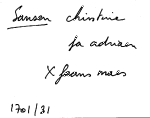 Sansen Christine
fa adriaen
X frans maes
1701/31